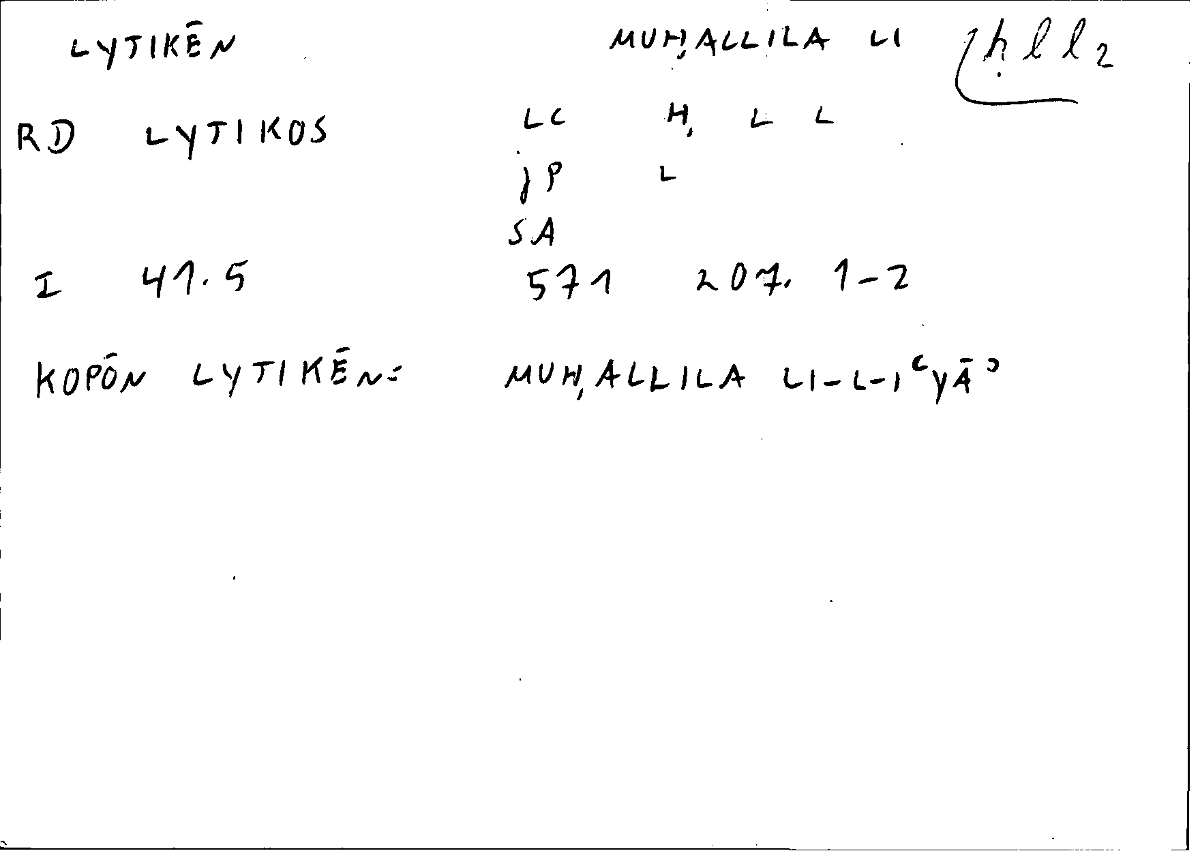 LYTIKĒN MUḤALLILA LI ḥll2
RD LYTIKOS LC Ḥ L L
JP L
SA
I 41.5 571 207. 1-2
KOPŌN LYTIKĒN: MUḤALLILA LI-L-I‘YĀ’